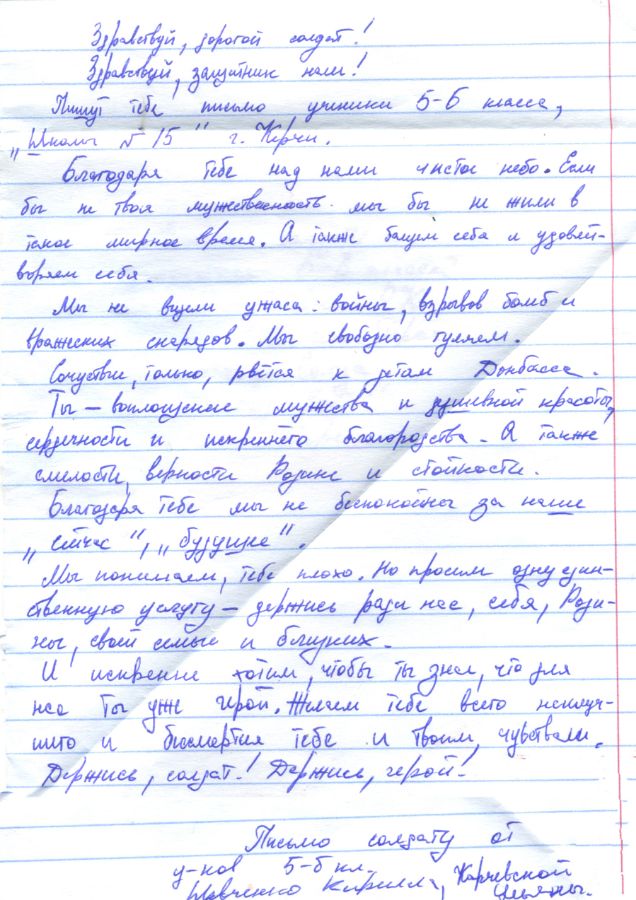 Здравствуй, дорогой солдат!
Здравствуй, защитник наш!
Пишут тебе письмо ученики 5-Б класса,
„Школы №15" г. Керчи.
Благодаря тебе над нами чистое небо. Если
бы не твоя мужественность мы бы не жили в
такое мирное время. А также балуем себя и удовлет-
воряем себя.
Мы не видели ужаса: войны, взрывов бомб и
вражеских снарядов. Мы свободно гуляем.
Сочуствие, только, рвётся к детям Донбасса.
Ты – воплощение мужества и душевной красоты,
сердечности и искреннего благородства. А также
смелости, верности Родине и стойкости.
Благодаря тебе мы не беспокойны за наше
„сейчас", „будущее".
Мы понимаем, тебе плохо. Но просим одну един-
ственную услугу – держись ради нас, себя, Роди-
ны, своей семьи и близких.
И искренне хотим, чтобы ты знал, что для
нас ты уже герой. Желаем тебе всего наилуч-
шего и бессмертия тебе и твоим чувствам.
Держись, солдат! Держись, герой!
Письмо солдату от
у-ков 5-Б кл.
Шевченко Кирилла, Карчевской
Ульяны.